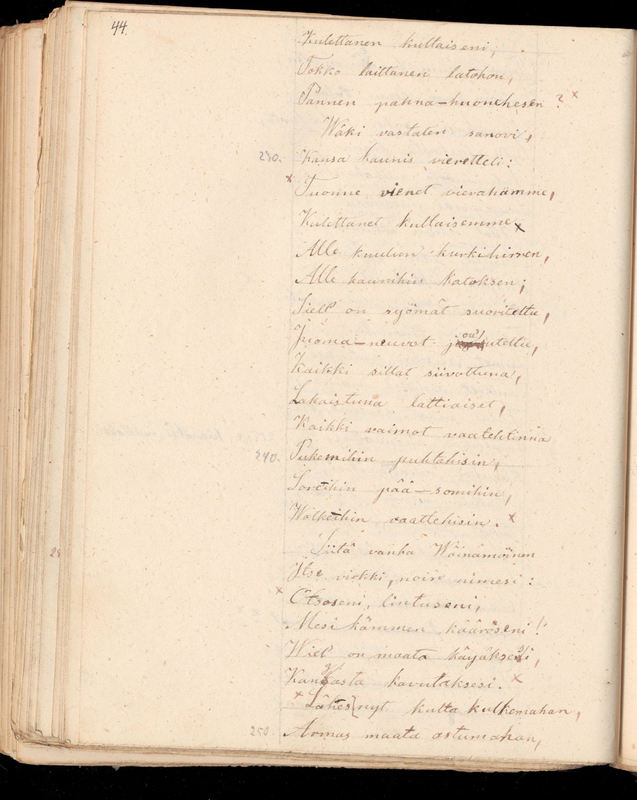 44.
Kulettanen kultaiseni,
Tokko laittanen latohon,
Pannen pahna-huonehesen? ×
Wäki vastaten sanovi,
230. Kansa kaunis vieretteli:
× Tuonne vienet vierahamme,
Kulettanet kultaisemme,
Alle kuulun kurkihirren,
Alle kaunihin katoksen;
Siell' on syömät suoritettu,
Juoma-neuvot joututeltu,
Kaikki sillat siivottuna,
Lakaistuna lattiaiset,
Kaikki vaimot vaatehtinna
240. Pukemihin puhtahisin,
Soreihin pää-somihin,
Walkeihin vaattehisin. ×
Siitä vanha Wäinämöinen
Itse virkki, noin nimesi:
× Otsoseni, lintuseni,
Mesikämmen kääröseni!
Wiel' on maata käyäksesi,
Kangasta kavutaksesi. ×
× Lähes nyt kulta kulkemahan,
250. Armas maata astumahan,